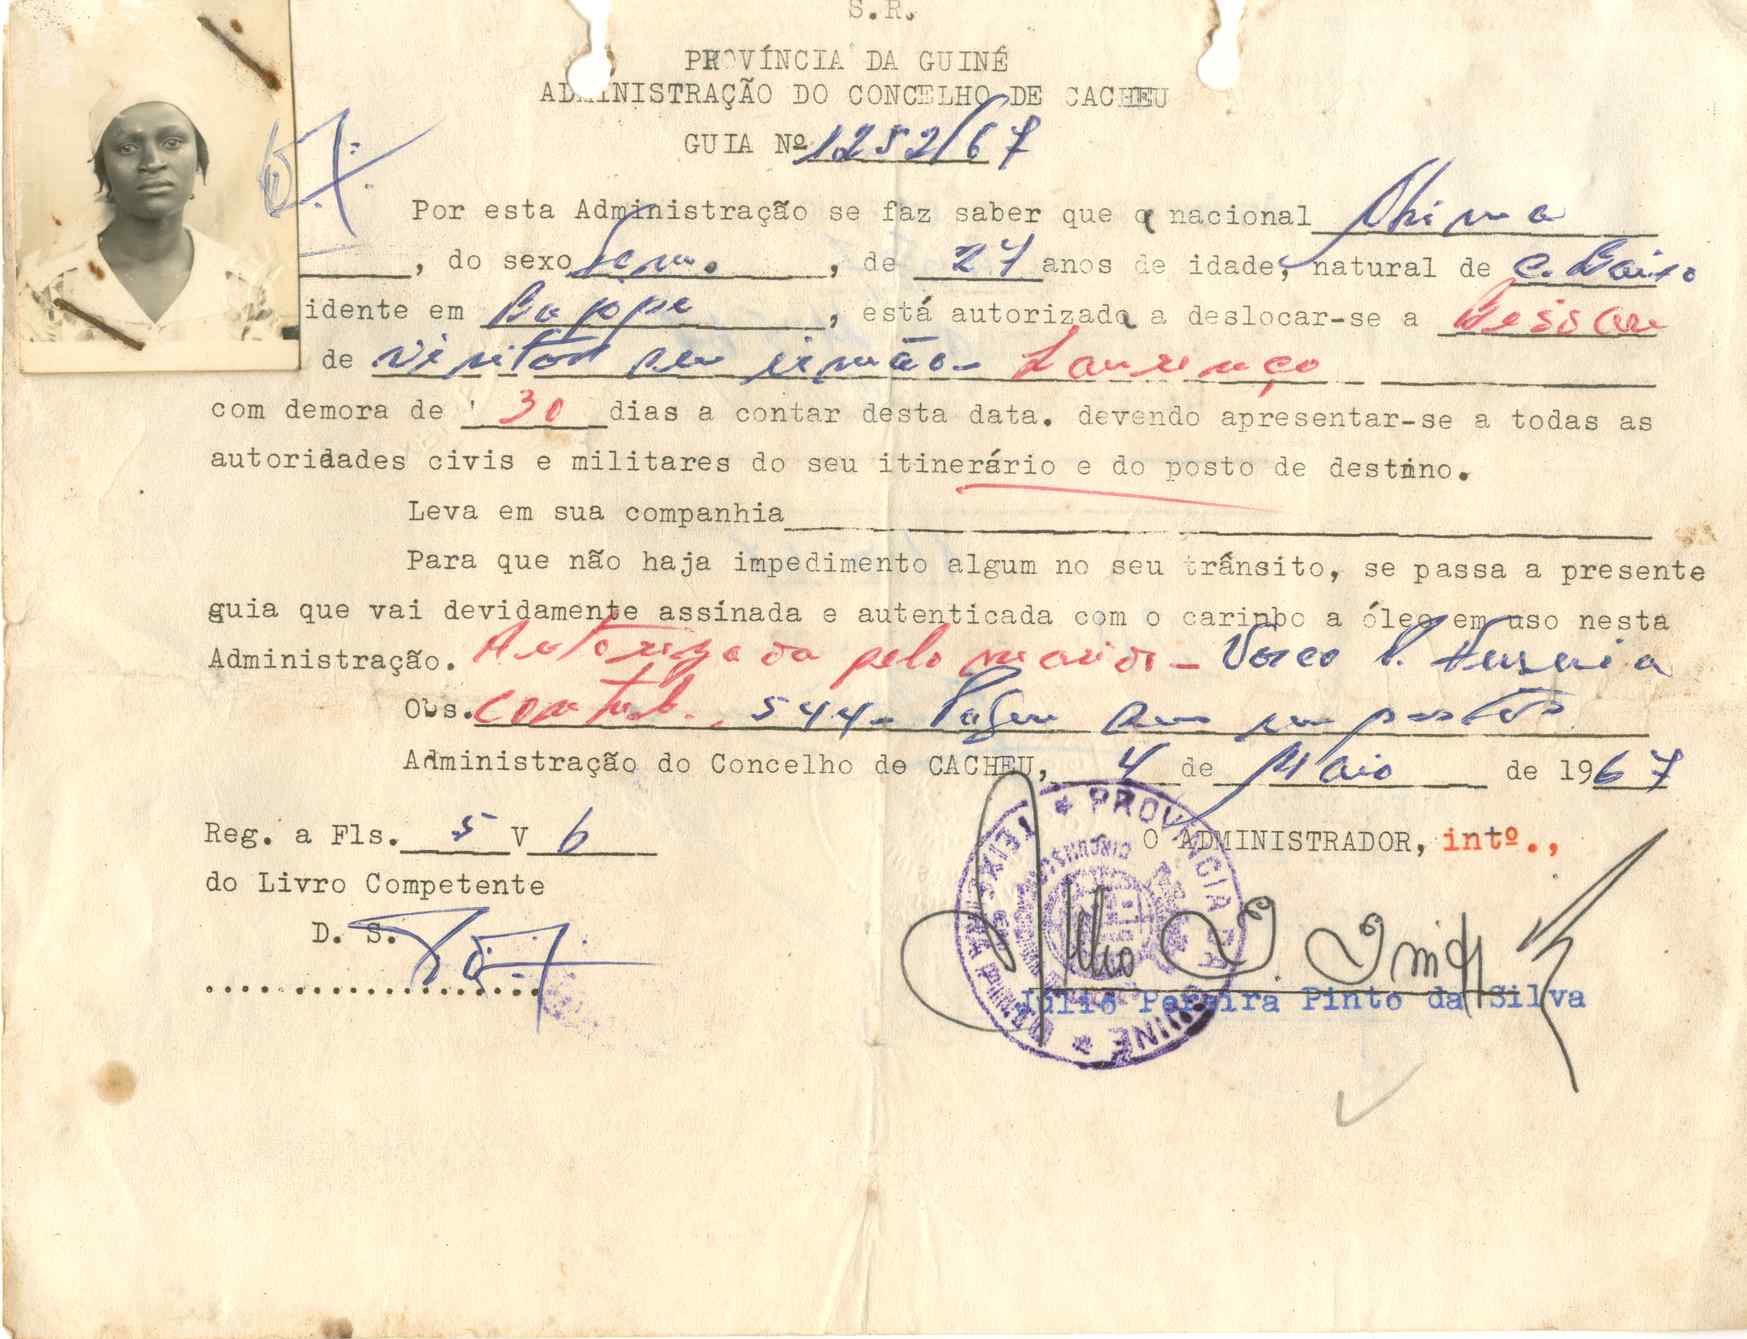 S.R.
PROVÍNCIA DA GUINÉ
ADMINISTRAÇÃO DO CONCELHO DE CACHEU
GUIA Nº 1252/67
Por esta Administração se faz saber que a nacional
, do sexo fem. , de 27 anos de idade, natural de C. Baixo
idente em Bajope , está autorizada a deslocar-se a Bissau
de visitar seu irmão - Laurenço
com demora de 30 dias a contar desta data. devendo apresentar-se a todas as
autoridades civis e militares do seu itinerário e do posto de destino.
Leva em sua companhia
Para que não haja impedimento algum no seu trânsito, se passa a presente
guia que vai devidamente assinada e autenticada com o carinbo a óleo em uso nesta
Administração. Autorizada pelo marido - Vasco
Obs. 544 - imposto
Administração do Concelho de CACHEU, 4 de Maio de 1967
Reg. a Fls. 5 V 6
O ADMINISTRADOR, intº.,
do Livro Competente
D. S.
....................
Júlio Pereira Pinto da Silva
PROVÍNCIA DA GUINÉ